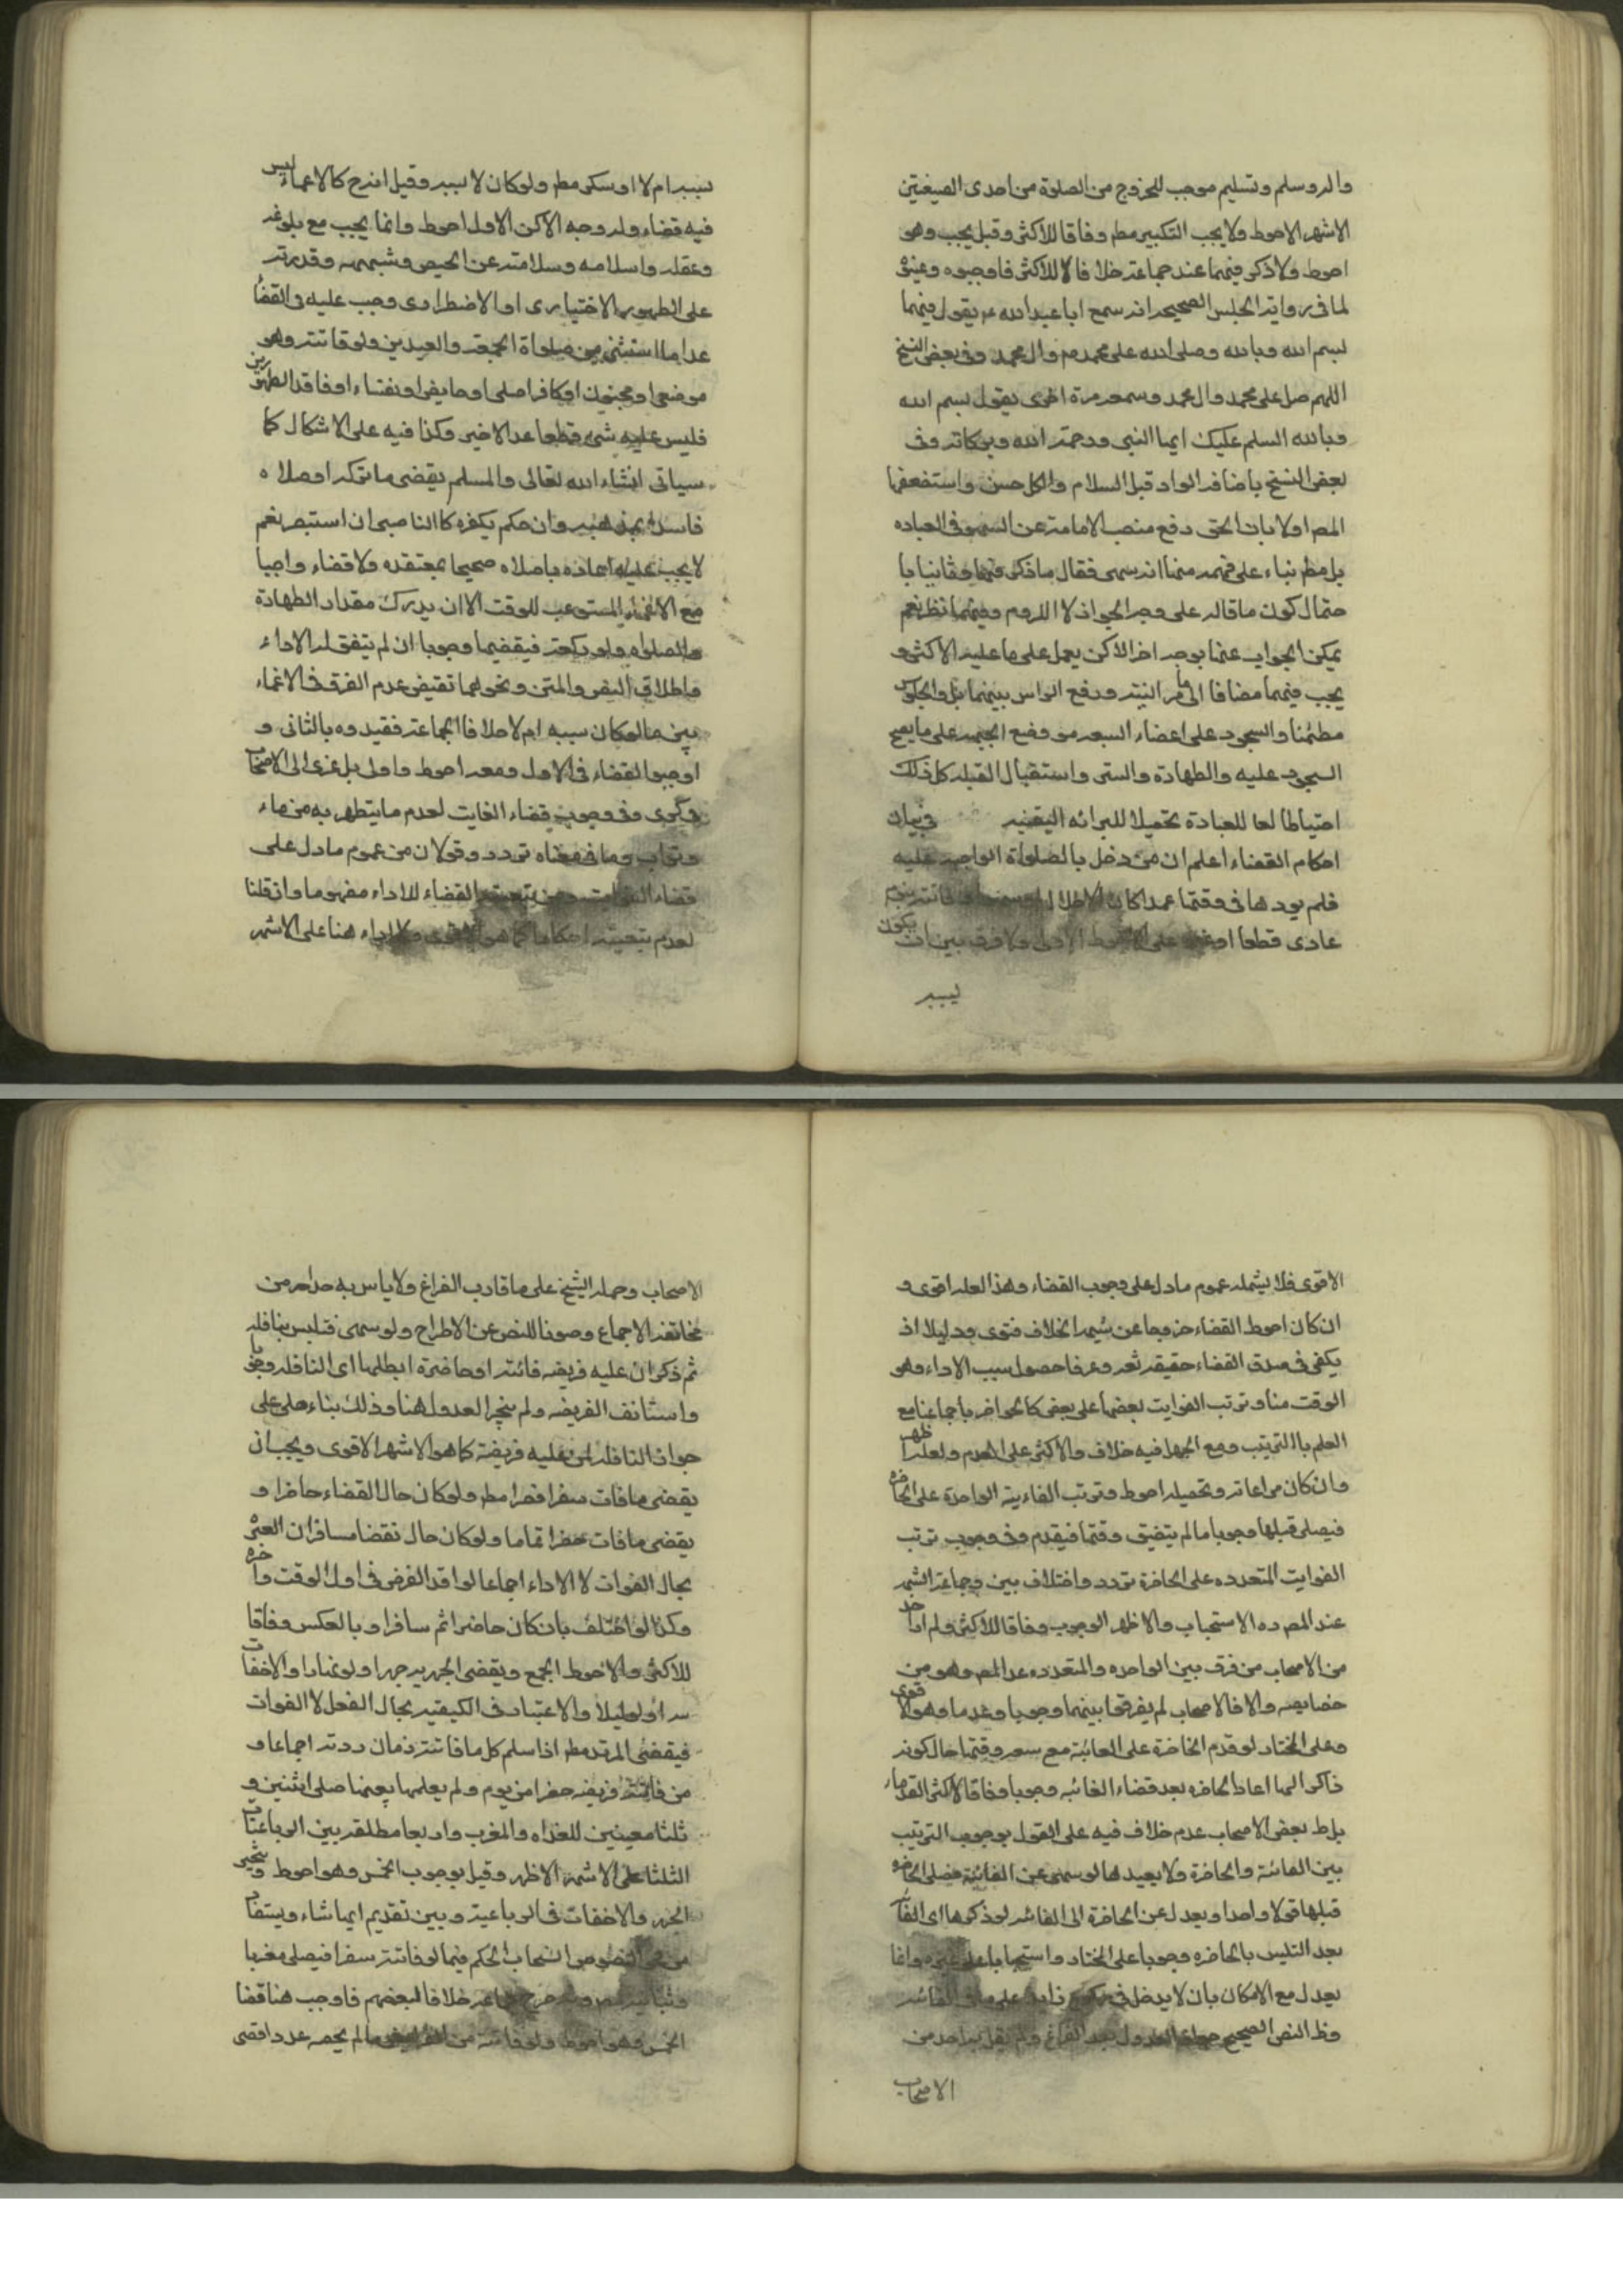 واله وسلم وتسليم موجب للخروج من الصلوة من احدى الصيغتين
الاشهر الاحوط ولا يجب التكبير مط وفاقا للاكثر وقيل يجب وهو
احوط ولا ذكر فيهما عند جماعة خلافا للاكثر فاوجبوه وعينوه
لما في رواية الحلبي الصحيحة انه سمع ابا عبد الله ع يقول فيهما
بسم الله وبالله وصلى الله على محمد وال محمد وفي بعض النسخ
اللهم صل على محمد وال محمد وسمعه مرة اخرى يقول بسم الله
وبالله السلم عليك ايها النبي ورحمة الله وبركاته وفي
بعض النسخ باضافة الواو قبل السلام والكل حسن واستضعفها
المص اولا بان الحق رفع منصب الامامة عن السهو في العباده
بل مط بناء على فهمه منها انه سهى فقال ما ذكر فيهما وثانيا با
حتمال كون ما قاله على وجه الجواز لا اللزوم وفيهما نظر نعم
يمكن الجواب عنهما بوجه اخر لاكن يعمل على ما عليه الاكثر و
يجب فيهما مضافا الى ما مر النية ورفع الراس بينهما بل والجلوس
مطمئنا والسجود على اعضاء السبعه مع وضع الجبهه على ما يصح
السجود عليه والطهارة والستر واستقبال القبله كل ذلك
احتياطا لها للعبادة تحصيلا للبرائه اليقينيه في بيان
احكام القضاء اعلم ان من دخل بالصلواة الواجبه عليه
فلم يودها في وقتها عمدا كان الاخلال او سهوا او فاتته بنوم
عادي قطعا او غيره على الاحوط الاولى ولا فرق بين ان يكون
بسببه
بسببه ام لا او سكر مط ولو كان لا بسببه وقيل انه ح كالاغماء ليس
فيه قضاء وله وجه لاكن الاول احوط وانما يجب مع بلوغه
وعقله واسلامه وسلامته عن الحيض وشبهه وقدرته
على الطهور الاختياري او الاضطراري وجب عليه القضاء
عدا ما استثنى من صلواة الجمعة والعيدين ولو فاتته وهو
موضعا او مجنون او كافر اصلي او حايض او نفساء او فاقد الطهورين
فليس عليه شيء قطعا عدا الاخير وكذا فيه على الاشكال كما
سياتي انشاء الله تعالى والمسلم يقضى ما تركه او صلاه
فاسدا بمذهبه وان حكم بكفره كالناصبي ان استبصر نعم
لا يجب عليه اعاده ما صلاه صحيحا بمعتقده ولا قضاء واجبا
مع الاغماء المستوعب للوقت الا ان يدرك مقدار الطهارة
والصلوه ولو بركعة فيقضيها وجوبا ان لم يتفق له الاداء
واطلاق النص والمتن ونحوهما تقتضي عدم الفرق في الاغماء
بين ما لو كان سببه ام لا خلافا لجماعة فقيدوه بالثاني و
اوجبوا القضاء في الاول ومعه احوط واولى بل عزى الى الاصحاب
في كرى وفي وجوب قضاء الفايت لعدم ما يتطهر به من ماء
وتراب وما في معناه تردد وقولان من عموم ما دل على
قضاء الفوايت ومن تبعية القضاء للاداء مفهوما وان قلنا
لعدم تبعيته احكاما كما هو الاقوى ولا اداء هنا على الاشهر
الاقوى فلا يشمله عموم ما دل على وجوب القضاء وهذا لعله اقوى و
ان كان احوط القضاء خروجا عن شبهة الخلاف فتوى ودليلا اذ
يكفي في صدق القضاء حقيقه لغه وعرفا حصول سبب الاداء وهو
الوقت هنا وترتب الفوايت بعضها على بعض كالحواضر باجماعنا مع
العلم باالترتيب ومع الجهل فيه خلاف والاكثر على العدم ولعله اظهر
وان كان مراعاته وتحصيله احوط وترتب الفايتة الواحدة على الحاضره
فيصلى قبلها وجوبا ما لم يتضيق وقتها فيقدم وفي وجوب ترتب
الفوايت المتعدده على الحاضرة تردد واختلاف بين وجماعة اشهر
عند المص ره الاستحباب والاظهر الوجوب وفاقا للاكثر ولم ار احد
من الاصحاب من فرق بين الواحده والمتعدده عدا المص وهو من
خصايصه والا فالاصحاب لم يفرقوا بينهما وجوبا وعدما وهو الاقوى
وعلى المختار لو قدم الحاضرة على الفائتة مع سعة وقتها حال كونه
ذاكرا لها اعاد الحاضره بعد قضاء الفائته وجوبا وفاقا لاكثر القدماء
بل ط بعض الاصحاب عدم خلاف فيه على القول بوجوب الترتيب
بين الفائتة والحاضرة ولا يعيدها لو سهى عن الفائتة فصلى الحاضره
قبلها قولا واحدا ويعدل عن الحاضرة الى الفائته لو ذكرها اى الفائتة
بعد التلبس بالحاضره وجوبا على المختار واستحبابا على غيره وانما
يعدل مع الامكان بان لا يدخل في ركوع زايد على ما في الفائته
وظ النص الصحيح جواز العدول بعد الفراغ ولم يقل به احد من
الاصحاب
الاصحاب وحمله الشيخ على ما قارب الفراغ ولا باس به حذرا من
مخالفة الاجماع وصونا للنص عن الاطراح ولو سهى فتلبس بنافله
ثم ذكر ان عليه فريضه فائته او حاضرة ابطلها اى النافله وجوبا
واستانف الفريضه ولم يجز العدول هنا وذلك بناء على على
جواز النافله لمن عليه فريضة كما هو الاشهر الاقوى ويجب ان
يقضى ما فات سفرا قصرا مط ولو كان حال القضاء حاضرا و
يقضى ما فات حضرا تماما ولو كان حال قضا مسافرا ان العبرة
بحال الفوات لا الاداء اجماعا لو اتحد الفرض في اول الوقت واخره
وكذا لو اختلف بان كان حاضرا ثم سافر او بالعكس وفاقا
للاكثر والاحوط الجمع ويقضى الجهريه جهرا ولو نهارا والاخفات
سرا ولو ليلا والاعتبار في الكيفيه بحال الفعل لا الفوات
فيقضى المرتد مط اذا اسلم كل ما فاتته زمان ردته اجماعا و
من فاتته فريضه حضرا من يوم ولم يعلمها بعينها صلى اثنين و
ثلثا معينين للغداه والمغرب واربعا مطلقه بين الرباعيات
الثلثا على الاشهر الاظهر وقيل بوجوب الخمس وهو احوط وتخير
الجهر والاخفات في الرباعية وبين تقديم ايها شاء ويستفاد
من النصوص انسحاب الحكم فيما لو فاتته سفرا فيصلى مغربا
وثنائيه وبه صرح جماعه خلافا لبعضهم فاوجب هنا قضا
الخمس وهو احوط ولو فاتته من الفرايض ما لم يحصه عددا قضى